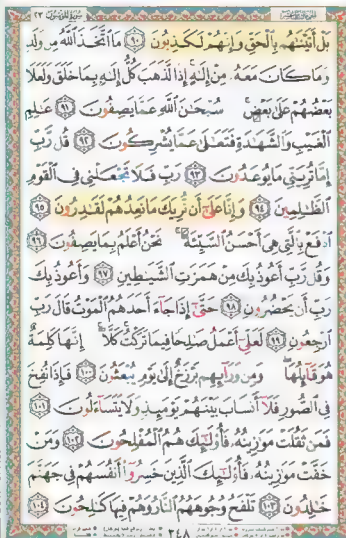 بَلْ أَتَيْنَٰهُم بِٱلْحَقِّ وَإِنَّهُمْ لَكَٰذِبُونَ ٩٠ مَا ٱتَّخَذَ ٱللَّهُ مِن وَلَدٍ
وَمَا كَانَ مَعَهُۥ مِنْ إِلَٰهٍ ۚ إِذًا لَّذَهَبَ كُلُّ إِلَٰهٍۭ بِمَا خَلَقَ وَلَعَلَا
بَعْضُهُمْ عَلَىٰ بَعْضٍ ۚ سُبْحَٰنَ ٱللَّهِ عَمَّا يَصِفُونَ ٩١ عَٰلِمِ
ٱلْغَيْبِ وَٱلشَّهَٰدَةِ فَتَعَٰلَىٰ عَمَّا يُشْرِكُونَ ٩٢ قُل رَّبِّ
إِمَّا تُرِيَنِّي مَا يُوعَدُونَ ٩٣ رَبِّ فَلَا تَجْعَلْنِي فِي ٱلْقَوْمِ
ٱلظَّٰلِمِينَ ٩٤ وَإِنَّا عَلَىٰٓ أَن نُّرِيَكَ مَا نَعِدُهُمْ لَقَٰدِرُونَ ٩٥
ٱدْفَعْ بِٱلَّتِي هِيَ أَحْسَنُ ٱلسَّيِّئَةَ ۚ نَحْنُ أَعْلَمُ بِمَا يَصِفُونَ ٩٦
وَقُل رَّبِّ أَعُوذُ بِكَ مِنْ هَمَزَٰتِ ٱلشَّيَٰطِينِ ٩٧ وَأَعُوذُ بِكَ
رَبِّ أَن يَحْضُرُونِ ٩٨ حَتَّىٰٓ إِذَا جَآءَ أَحَدَهُمُ ٱلْمَوْتُ قَالَ رَبِّ
ٱرْجِعُونِ ٩٩ لَعَلِّيٓ أَعْمَلُ صَٰلِحًا فِيمَا تَرَكْتُ ۚ كَلَّآ ۚ إِنَّهَا كَلِمَةٌ
هُوَ قَآئِلُهَا ۖ وَمِن وَرَآئِهِم بَرْزَخٌ إِلَىٰ يَوْمِ يُبْعَثُونَ ١٠٠ فَإِذَا نُفِخَ
فِي ٱلصُّورِ فَلَآ أَنسَابَ بَيْنَهُمْ يَوْمَئِذٍ وَلَا يَتَسَآءَلُونَ ١٠١
فَمَن ثَقُلَتْ مَوَٰزِينُهُۥ فَأُو۟لَٰٓئِكَ هُمُ ٱلْمُفْلِحُونَ ١٠٢ وَمَنْ
خَفَّتْ مَوَٰزِينُهُۥ فَأُو۟لَٰٓئِكَ ٱلَّذِينَ خَسِرُوٓا۟ أَنفُسَهُمْ فِي جَهَنَّمَ
خَٰلِدُونَ ١٠٣ تَلْفَحُ وُجُوهَهُمُ ٱلنَّارُ وَهُمْ فِيهَا كَٰلِحُونَ ١٠٤
٣٤٨